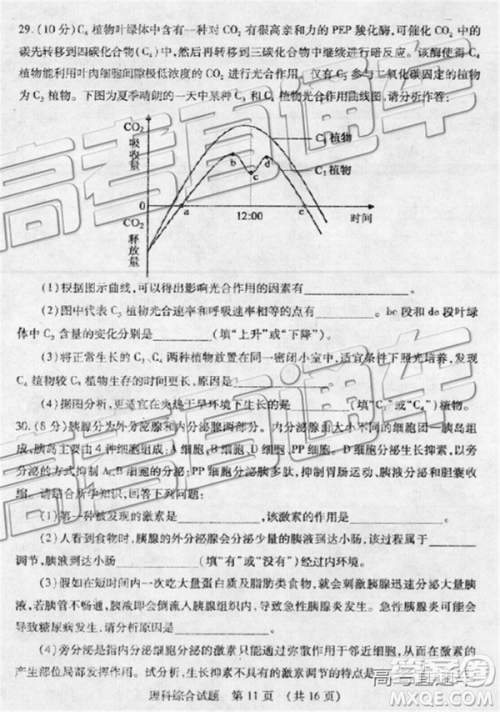 29.(10分)C₄植物叶绿体中含有一种对CO₂有很高亲和力的PEP羧化酶,可催化CO₂中的
碳先转移到四碳化合物(C₄)中,然后再转移到三碳化合物中继续进行暗反应。该酶使得C₄
植物能利用叶肉细胞间隙极低浓度的CO₂进行光合作用。仅有C₃参与二氧化碳固定的植物
为C₃植物。下图为夏季晴朗的一天中某C₃和C₄植物光合作用曲线图,请分析作答:
CO₂
吸收量
C₄植物
C₃植物
a b c d e
0
12:00
时间
CO₂
释放量
(1)根据图示曲线,可以得出影响光合作用的因素有
(2)图中代表C₃植物光合速率和呼吸速率相等的点有 。bc段和de段叶绿
体中C₃含量的变化分别是 (填“上升”或“下降”)。
(3)将正常生长的C₃、C₄两种植物放置在同一密闭小室中,适宜条件下照光培养,发现
C₄植物较C₃植物生存的时间更长,原因是 。
(4)据图分析,更适宜在炎热干旱环境下生长的是 (填“C₃”或“C₄”)植物。
30.(8分)胰腺分为外分泌腺和内分泌腺两部分。内分泌腺由大小不同的细胞团—胰岛组
成,胰岛主要由4种细胞组成:A、B、D、PP细胞。D细胞分泌生长抑素,以旁
分泌的方式抑制A、B细胞分泌;PP细胞分泌胰多肽,抑制胃肠运动、胰液分泌和胆囊收
缩。请结合所学知识,回答下列问题:
(1)第一种被发现的激素是 ,该激素的作用是 。
(2)人看到食物时,胰腺的外分泌腺会分泌少量胰液,胰液到达小肠,该过程属于
调节,胰液到达小肠 (填“有”或“没有”)经过内环境。
(3)假如在短时间内一次吃大量蛋白质及脂肪类食物,就会刺激胰腺迅速分泌大量胰
液,若胰管不畅通,
导致糖尿病发生。请分析原因
(4)旁分泌指内分泌细胞分泌的激素只能通过细胞间隙弥散作用于邻近细胞,从而激素的
产生部位局部发挥调节作用。试分析,生长抑素不具有的激素调节的特点是
理科综合试题 第11页 (共16页)
高考直通车